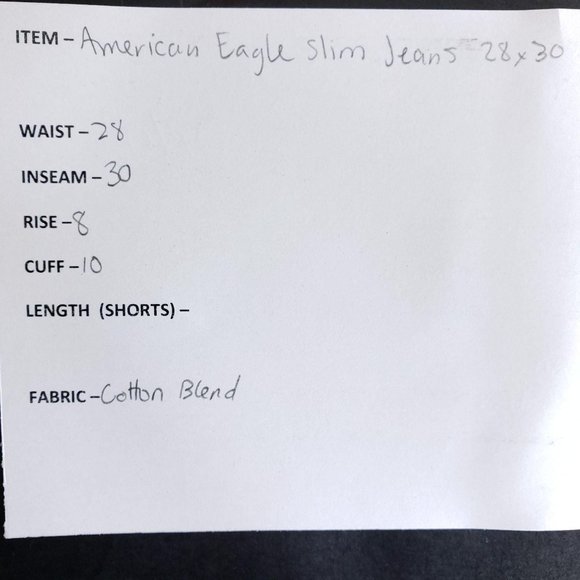 ITEM – American Eagle Slim Jeans 28x30
WAIST – 28
INSEAM – 30
RISE – 8
CUFF – 10
LENGTH (SHORTS) –
FABRIC – Cotton Blend